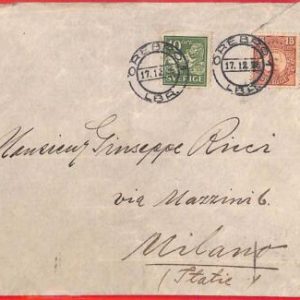 ÖREBRO 1
17.12.
LBR.
10
ÖREBRO 1
17.12.
LBR.
15
Monsieur Giuseppe Ricci
via Mazzini 6.
Milano
(Italie)